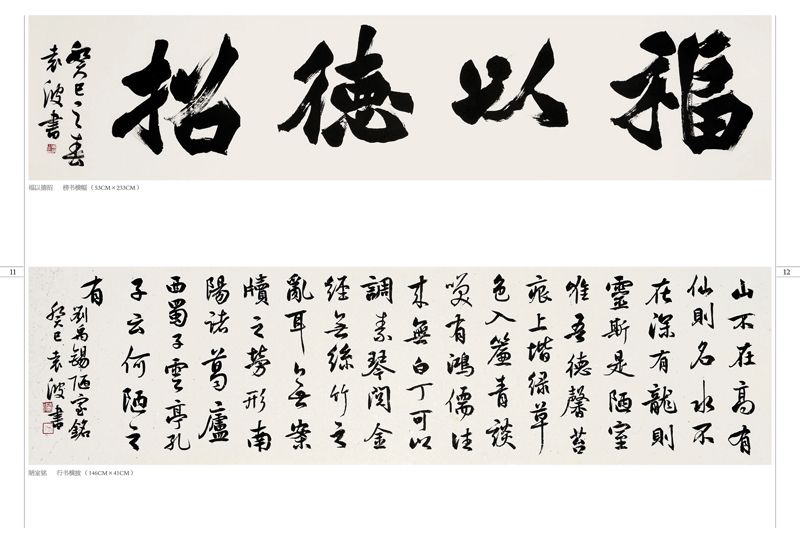 福以德招
癸巳之春
袁波書
福以德招 榜书横幅（53CM×233CM）
11
12
山不在高有
仙則名水不
在深有龍則
靈斯是陋室
唯吾德馨苔
痕上堦緑草
色入簾青談
笑有鴻儒往
来無白丁可以
調素琴閲金
經無絲竹之
亂耳無案
牘之勞形南
陽諸葛廬
西蜀子雲亭孔
子云何陋之
有
劉禹錫陋室銘
癸巳袁波書
陋室铭 行书横披（146CM×41CM）